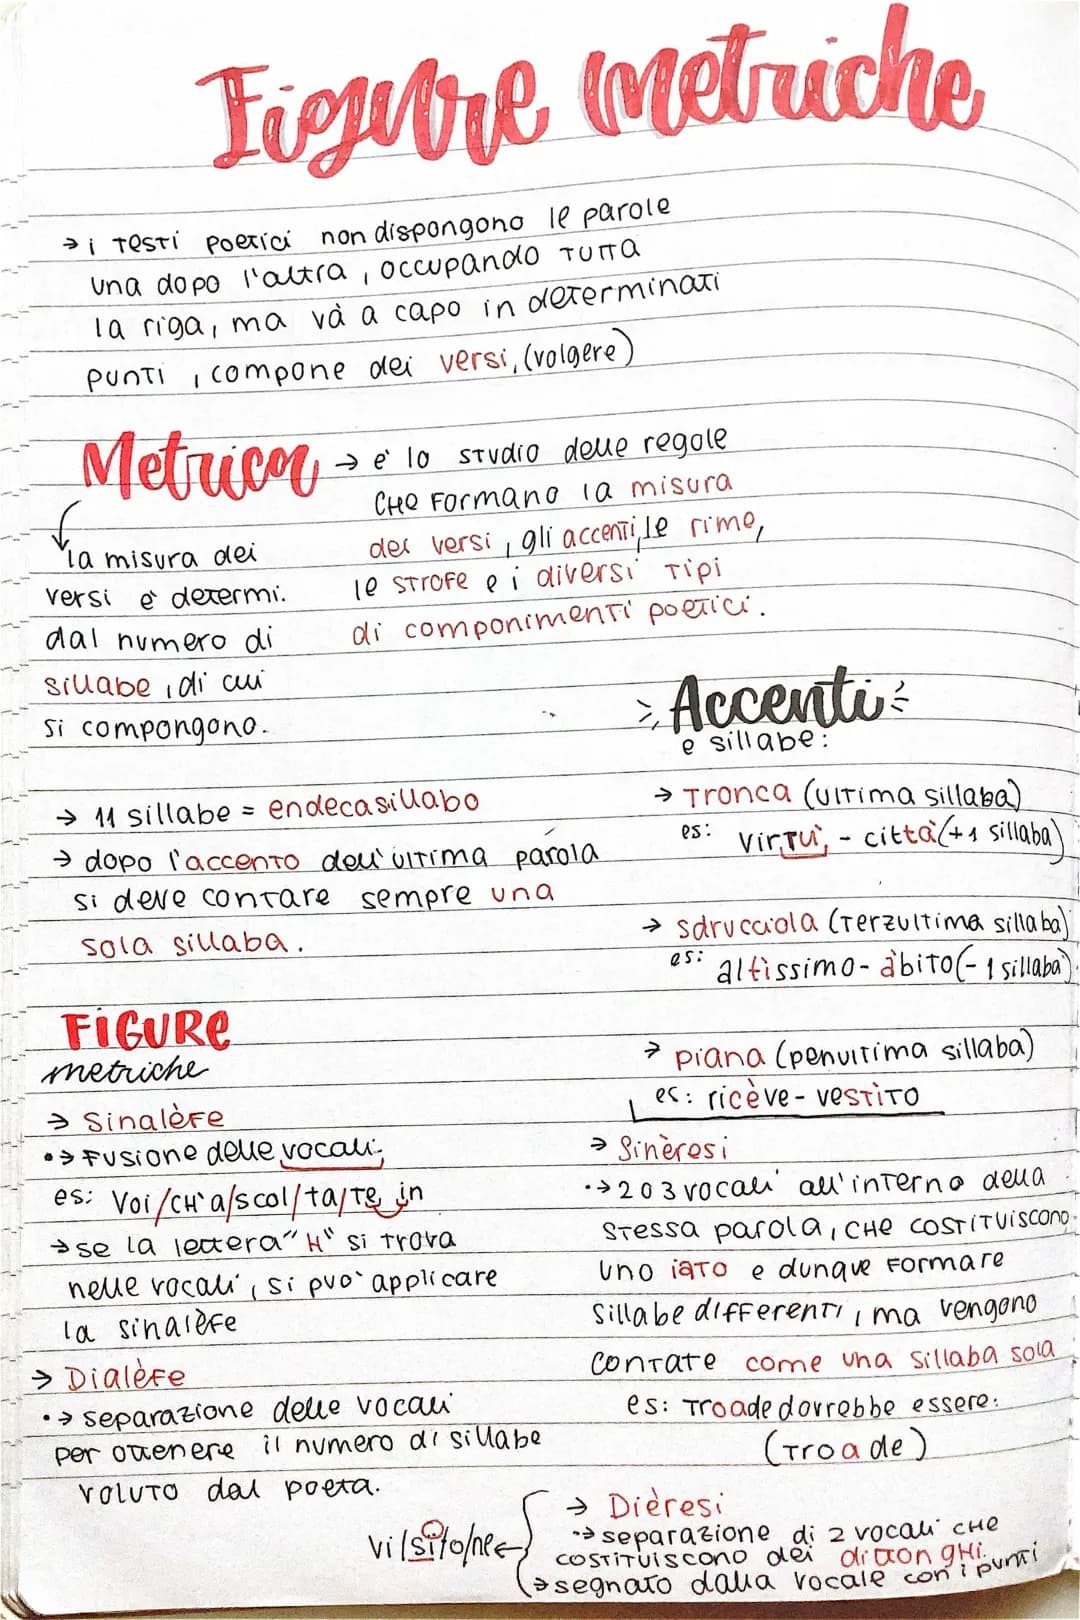 Figure metriche
→ i testi poetici non dispongono le parole
una dopo l'altra, occupando tutta
la riga, ma và a capo in determinati
punti, compone dei versi, (volgere)
Metrica → e' lo studio delle regole
che formano la misura
dei versi, gli accenti, le rime,
le strofe e i diversi tipi
di componimenti poetici.
la misura dei
versi è determi.
dal numero di
sillabe, di cui
si compongono.
→ 11 sillabe = endecasillabo
→ dopo l'accento dell'ultima parola
si deve contare sempre una
sola sillaba.
Accenti
e sillabe:
→ Tronca (ultima sillaba)
es: virtù, - città (+1 sillaba)
→ sdrucciola (terzultima sillaba)
es: altìssimo - àbito (-1 sillaba)
→ piana (penultima sillaba)
es: ricève - vestìto
FIGURE
metriche
→ Sinalèfe
•→ Fusione delle vocali.
es: Voi/ch'a/scol/ta/te in
→ se la lettera "H" si trova
nelle vocali, si puo' applicare
la sinalèfe
→ Dialèfe
•→ separazione delle vocali
per ottenere il numero di sillabe
voluto dal poeta.
→ Sinèresi
•→ 2 o 3 vocali all'interno della
stessa parola, che costituiscono
uno iato e dunque formare
sillabe differenti, ma vengono
contate come una sillaba sola
es: Troade dovrebbe essere:
(Tro a de)
→ Dièresi
•→ separazione di 2 vocali che
costituiscono dei dittonghi.
→ segnato dalla vocale con i punti
vi/sï/o/ne ←